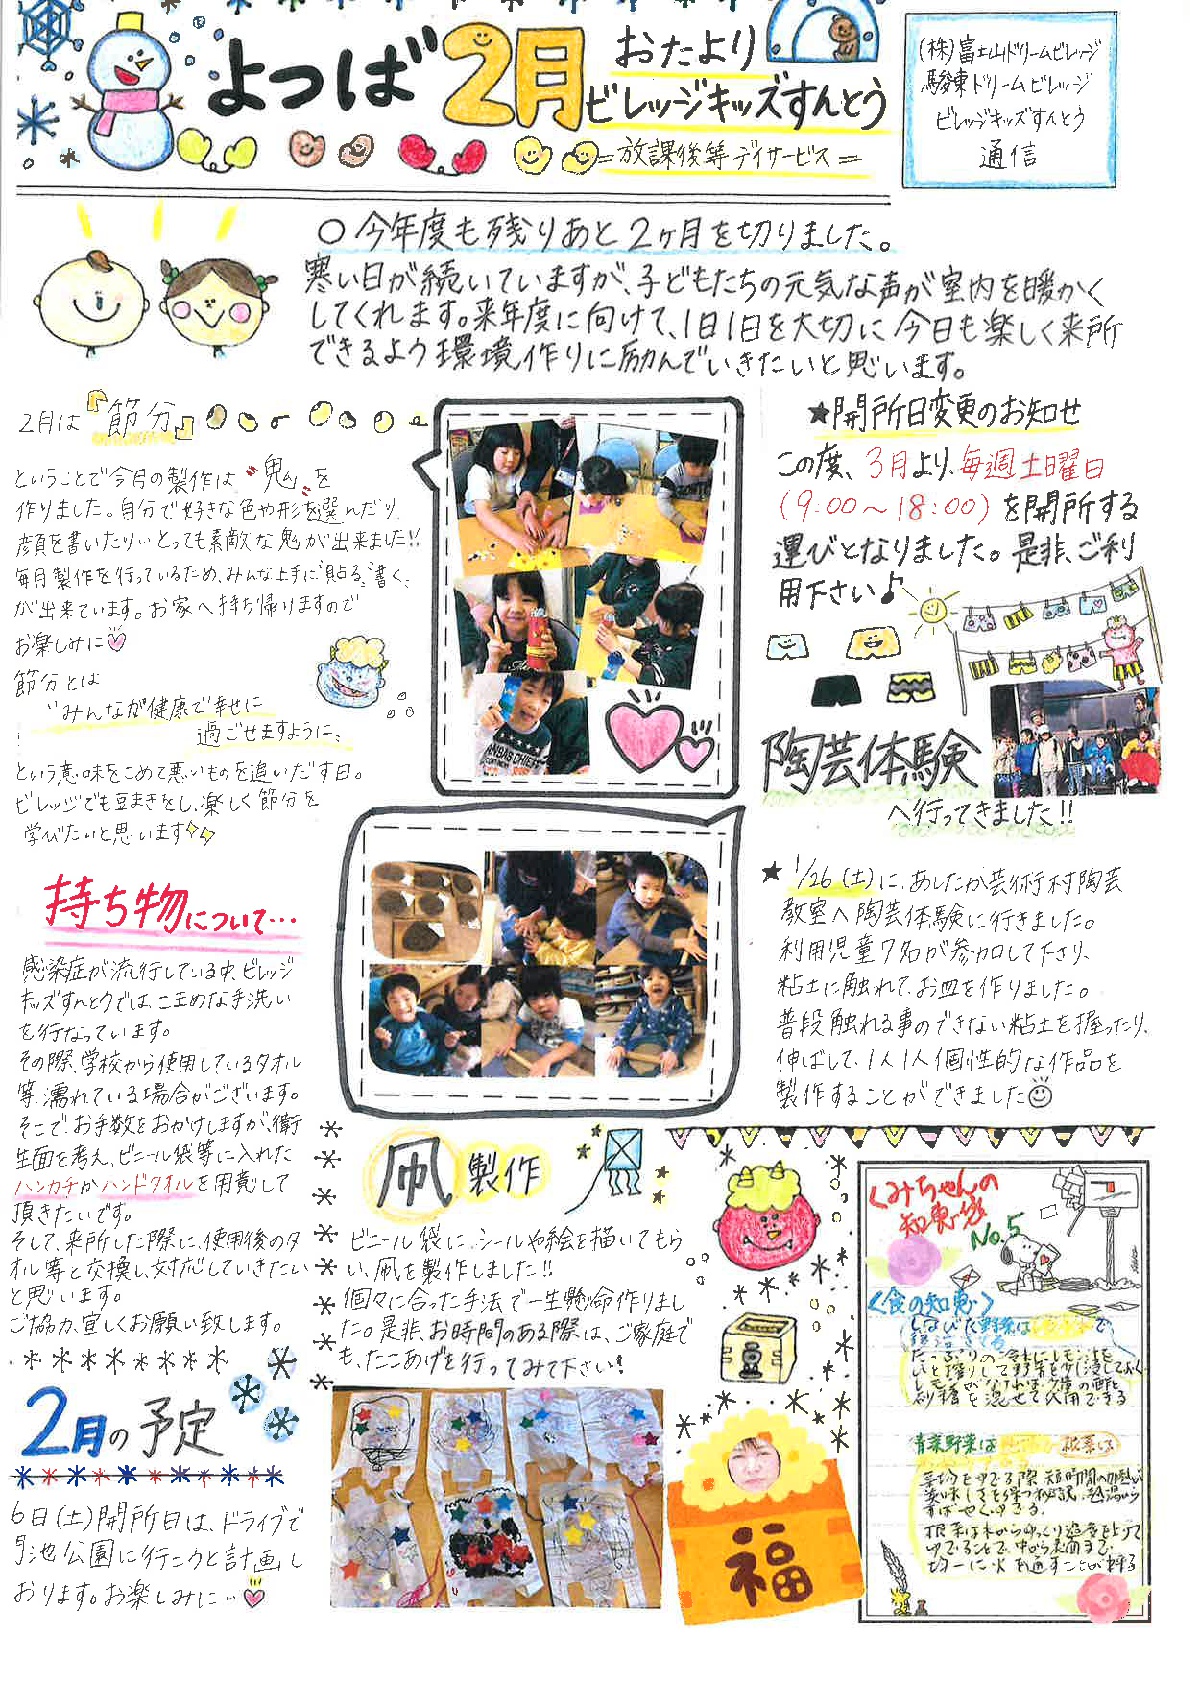 よつば 2月 おたより
ビレッジキッズすんとう
=放課後等デイサービス=
(株)富士山ドリームビレッジ
駿東ドリームビレッジ
ビレッジキッズすんとう
通信
○今年度も残りあと2ヶ月を切りました。
寒い日が続いていますが、子どもたちの元気な声が室内を暖かく
してくれます。来年度に向けて、1日1日を大切に今日も楽しく来所
できるよう環境作りに励んでいきたいと思います。
2月は『節分』
ということで今月の製作は"鬼"を
作りました。自分で好きな色や形を選んだり、
顔を書いたり…とっても素敵な鬼が出来ました!!
毎月製作を行っているため、みんな上手に"貼る""書く"
が出来ています。お家へ持ち帰りますので
お楽しみに♡
節分とは
"みんなが健康で幸せに
過ごせますように"
という意味をこめて悪いものを追いだす日。
ビレッジでも豆まきをし、楽しく節分を
学びたいと思います
★開所日変更のお知せ
この度、3月より、毎週土曜日
(9:00～18:00)を開所する
運びとなりました。是非、ご利
用下さい♪
陶芸体験
へ行ってきました!!
★1/26(土)に、あしたか芸術村陶芸
教室へ陶芸体験に行きました。
利用児童7名が参加して下さり、
粘土に触れて、お皿を作りました。
普段触れる事のできない粘土を握ったり、
伸ばして、1人1人個性的な作品を
製作することができました
持ち物について…
感染症が流行している中、ビレッジ
キッズすんとうでは、こまめな手洗い
を行なっています。
その際、学校から使用しているタオル
等、濡れている場合がございます。
そこで、お手数をおかけしますが、衛
生面を考え、ビニール袋等に入れた
ハンカチかハンドタオルを用意して
頂きたいです。
そして、来所した際に、使用後のタ
オル等と交換し、対応していきたい
と思います。
ご協力、宜しくお願い致します。
凧製作
ビニール袋に、シールや絵を描いてもら
い、凧を製作しました!!
個々に合った手法で一生懸命作りまし
た。是非、お時間のある際は、ご家庭で
も、たこあげを行ってみて下さい!
2月の予定
6日(土)開所日は、ドライブで
門池公園に行こうと計画し
おります。お楽しみに…♡
福
くみちゃんの
知恵袋
No.5
<食の知恵>
しなびた野菜は
青菜野菜は 根菜は